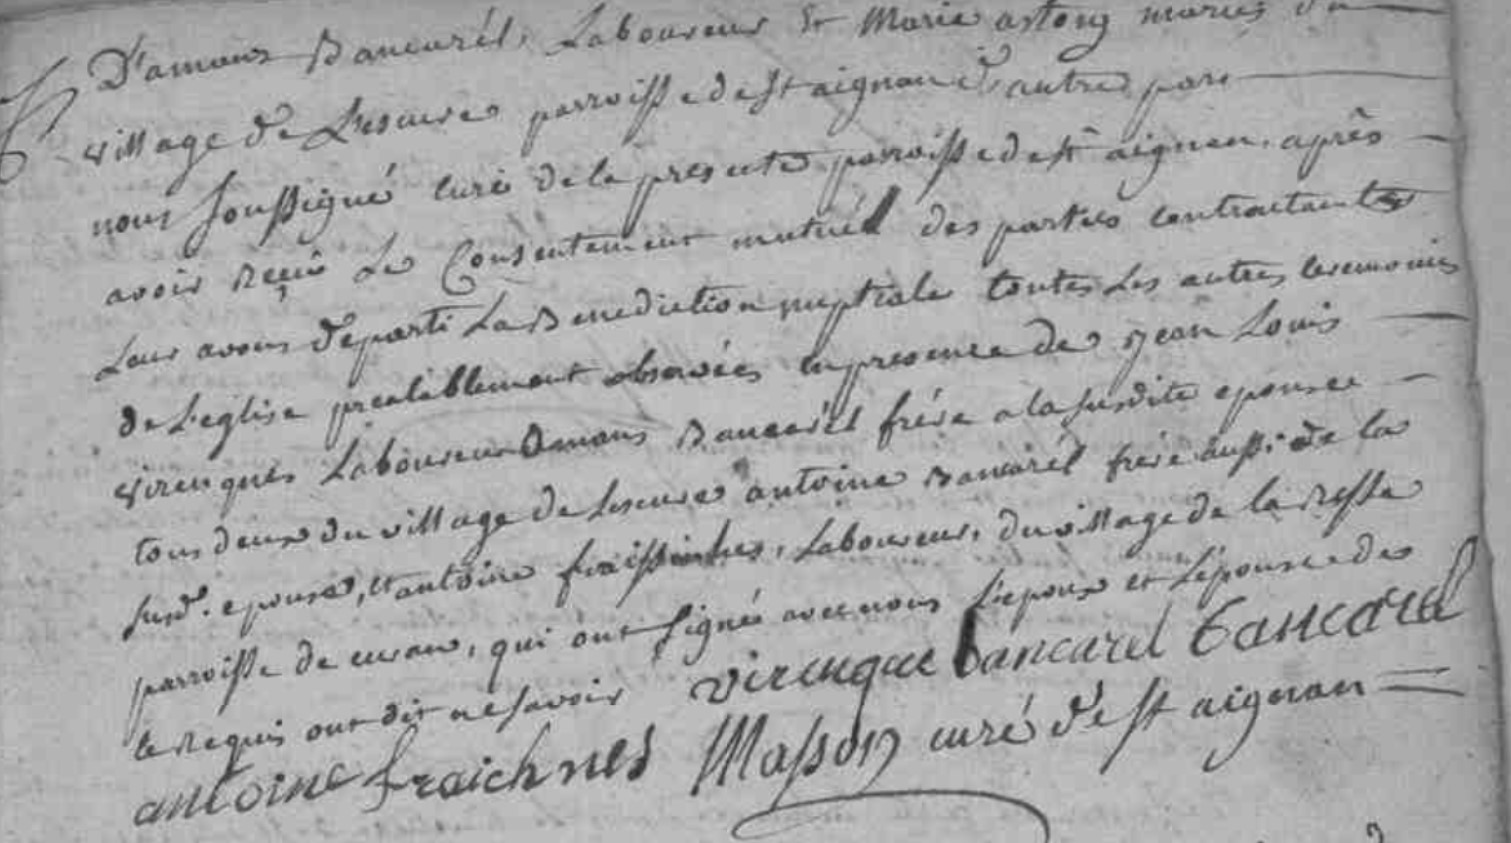 D'amans Bancarél, Laboureur & Marie astorg mariés du
village de Lescure parroisse de st aignan d'autre part
nous soussigné curé de la presente parroisse de st aignan, après
avoir reçu Le Consentement mutuél des parties contractantes
Leur avons departi La Benediction nuptiale toutes Les autres ceremonies
de L'eglise prealablement observées en presence de Jean Louis
virenques Laboureur amans Bancarél frére a la susdite epouse
tous deux du village de Lescure antoine Bancarél frere aussi de la
susd. epouse, et antoine fraissinhes, Laboureur, du village de la Resse
parroisse de, qui ont signé avec nous L'epoux et L'epouse de
ce Requis ont dit ne savoir virengue bancarel bancarel
antoine fraichnes Masson curé de st aignan